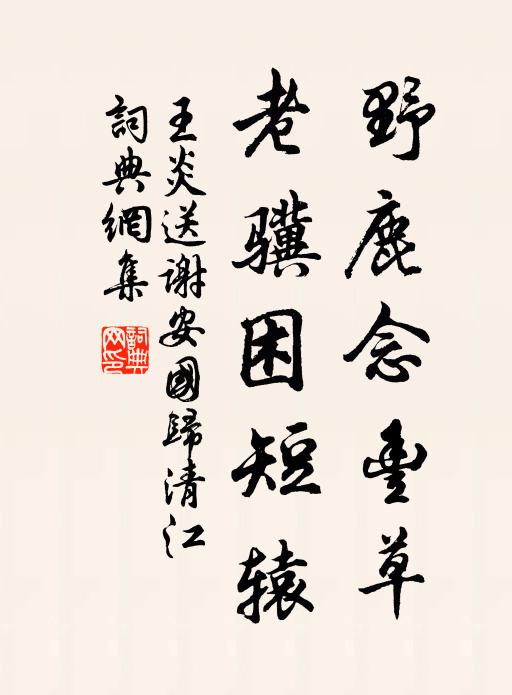 野鹿念豐草
老骥困短辕
王炎送谢安國歸清江
詞典網集
詞典網印